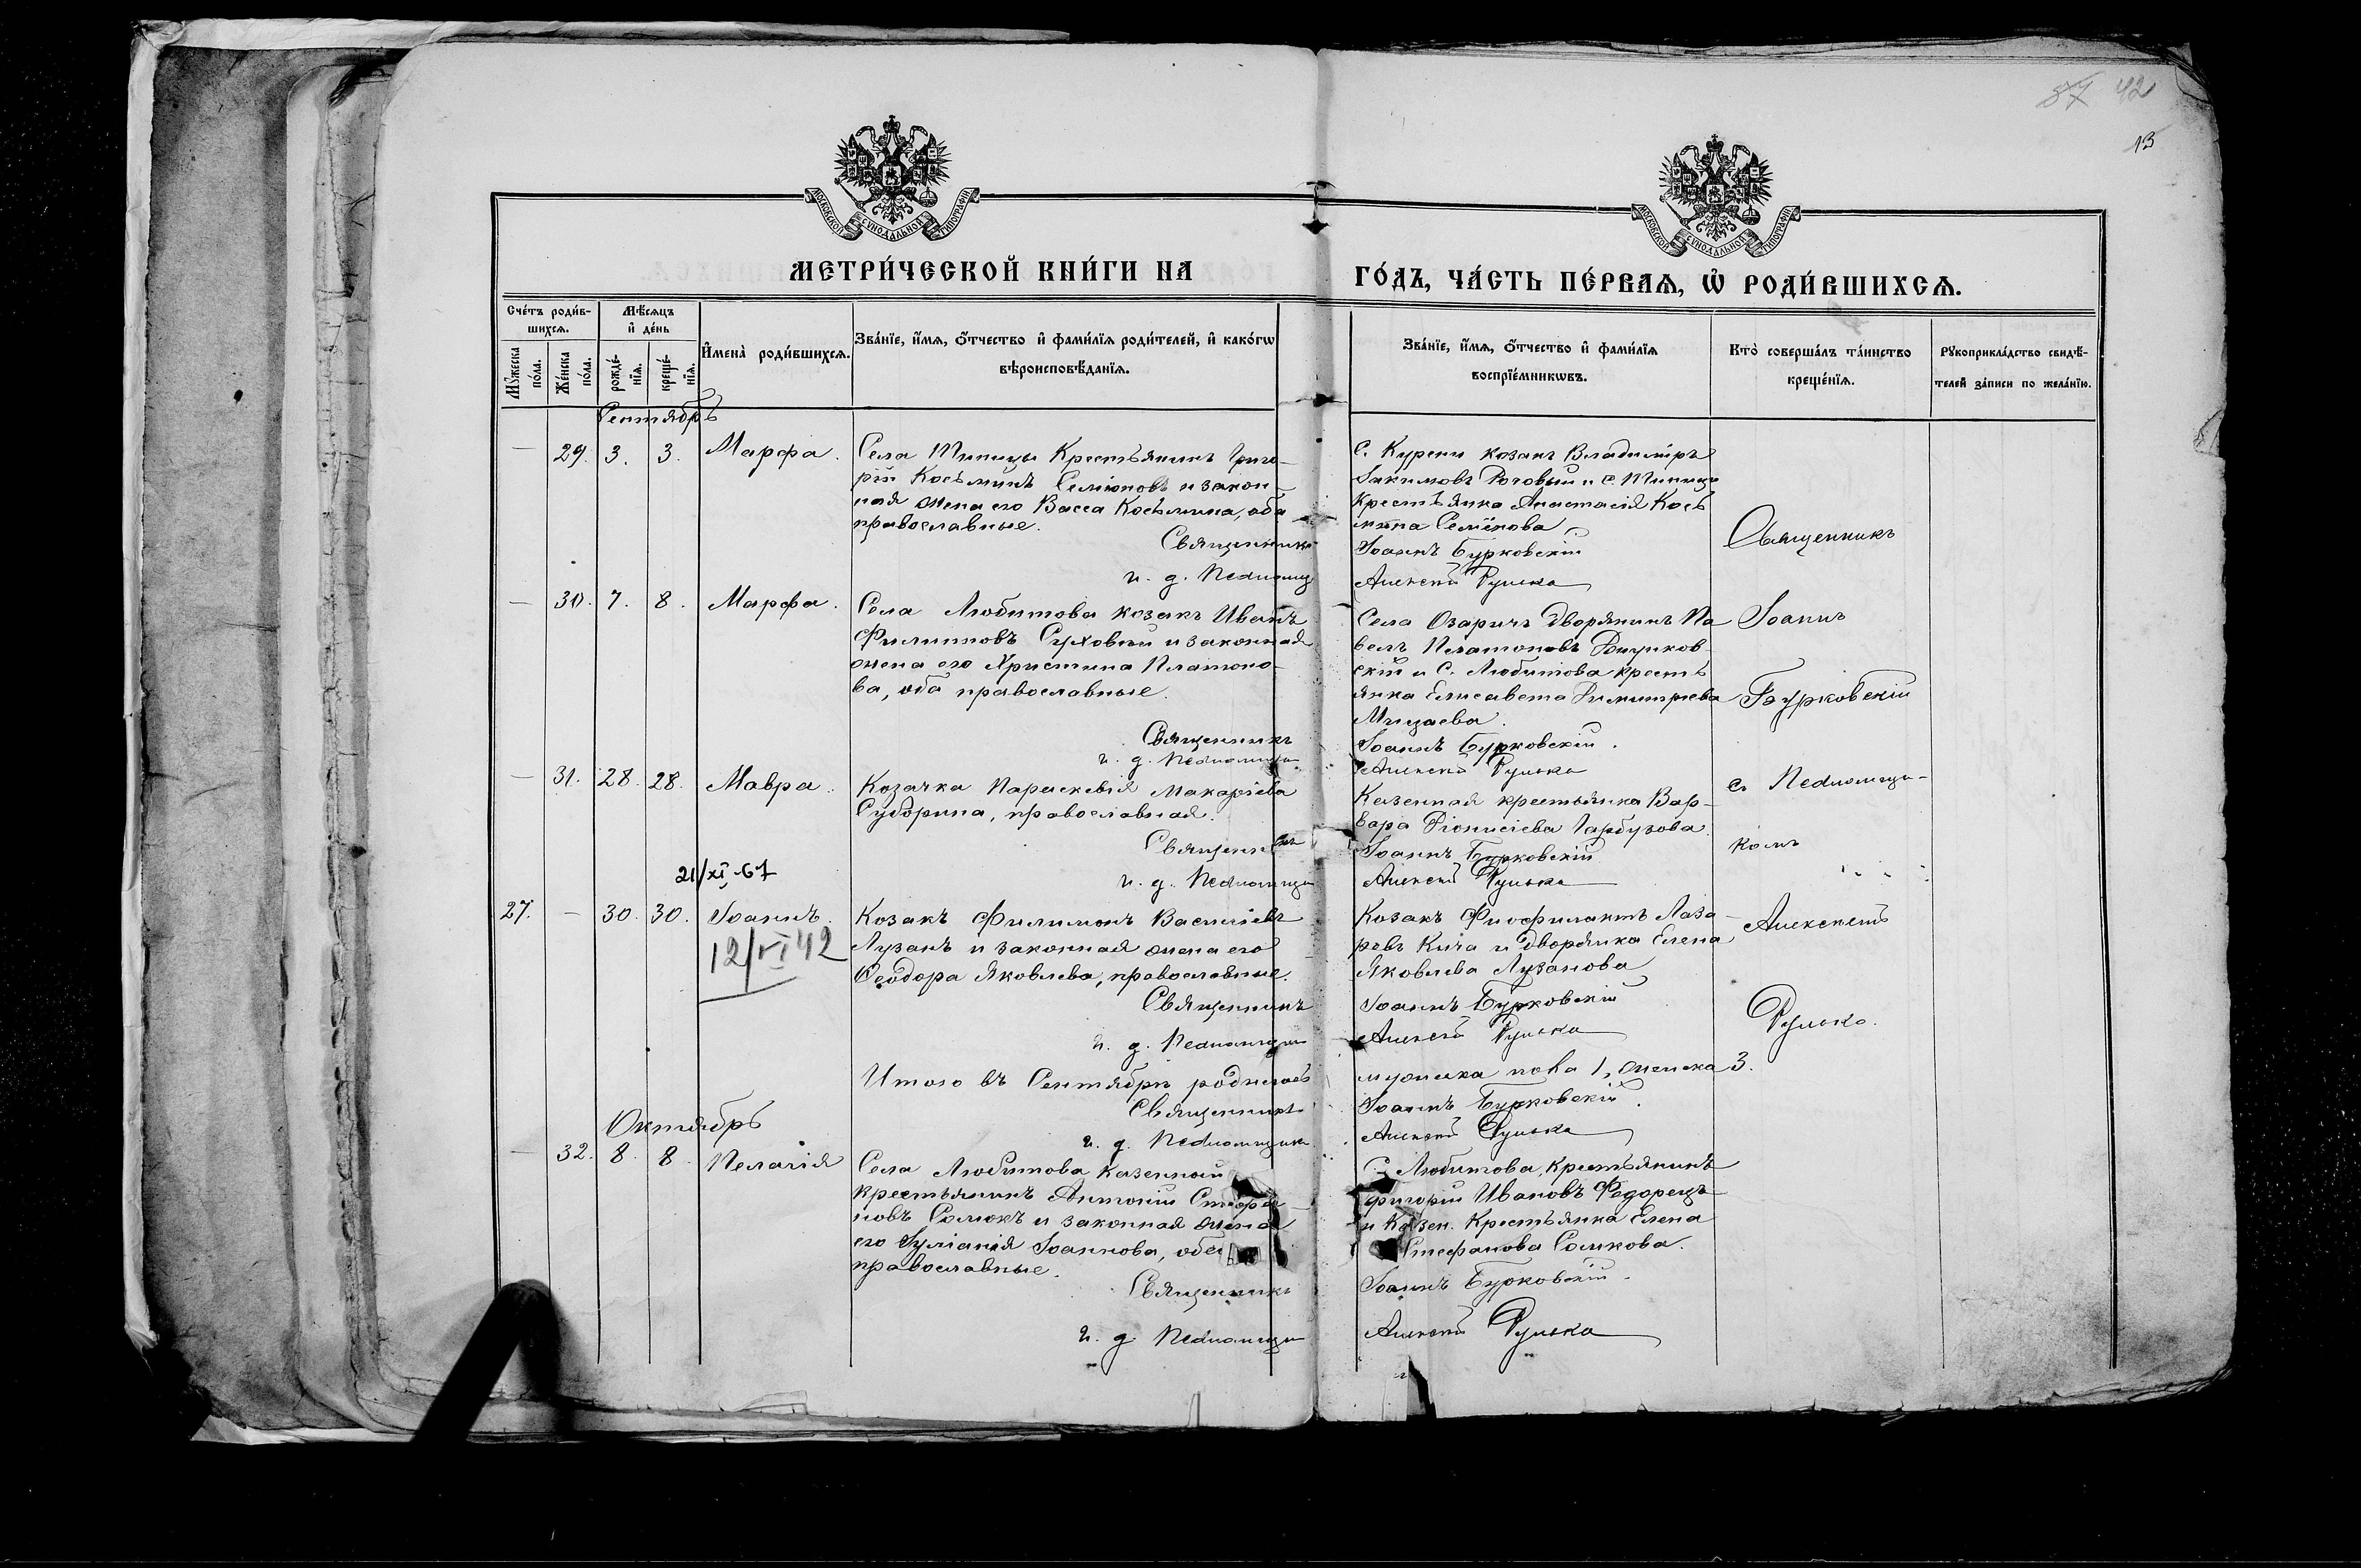 87 42
13
МОСКОВСКОЙ СѴНОДАЛЬНОЙ ТИПОГРАФІИ
МОСКОВСКОЙ СѴНОДАЛЬНОЙ ТИПОГРАФІИ
МЕТРИ́ЧЕСКОЙ КНИ́ГИ НА
ГО́ДЪ, ЧА́СТЬ ПЕ́РВАѦ, Ѡ҆ РОДИ́ВШИХСѦ.
Сче́тъ роди́в-
шихсѧ.
Мꙋ́жеска
по́ла.
Же́нска
по́ла.
Мѣ́сѧцъ
и҆ де́нь
рожде́-
нїѧ.
креще́-
нїѧ.
И҆мена̀ роди́вшихсѧ.
Зва́нїе, и҆́мѧ, ѻ҆́тчество и҆ фами́лїѧ роди́телей, и҆ како́гѡ
вѣроисповѣ́данїѧ.
Зва́нїе, и҆́мѧ, ѻ҆́тчество и҆ фами́лїѧ
воспрїе́мникѡвъ.
Кто̀ соверша́лъ та́инство
креще́нїѧ.
Рꙋкоприкла́дство свидѣ́-
телей за́писи по жела́нїю.
Сентябрь
— 29. 3. 3. Марфа.
Села Типицы Крестьянинъ Григо-
рій Косьминъ Семіоновъ и закон-
ная жена его Васса Косьмина, оба
православные.
Священникъ
и. д. Псаломщ
С. Курени козакъ Владиміръ
Іакимовъ Роговый и с.
крестьянка Анастасія Кось
мина Семіонова
Іоаннъ Бурковскій
Алексій Рулька
— 30. 7. 8. Марфа.
Села Любитова козакъ Иванъ
Филипповъ Суховій и законная
жена его Христина Платоно-
ва, оба православные.
Священникъ
и. д. Псаломщи
Села Озаричъ Дворянинъ Па-
велъ Платоновъ
скій и С. Любитова кресть
янка Елисавета Димитріева
Іоаннъ Бурковскій.
Алексій Рулька
— 31. 28. 28. Мавра.
Козачка Параскевія Макаріева
Субърина, православная.
Священникъ
и. д. Псаломщи
Казенная крестьянка Вар-
вара Діонисіева Гарбузова.
Іоаннъ Бурковскій
Алексій Рулька
21/XI-67
27. — 30. 30. Іоаннъ.
12/VI 42
Козакъ Филимонъ Василіевъ
Лузанъ и законная жена его
Ѳеодора Яковлева, православные.
Священникъ
и. д. Псаломщи
Козакъ Феофилактъ Лаза-
ревъ Кича и Дворянка Елена
Яковлева Лузанова
Іоаннъ Бурковскій
Алексій Рулька
Священникъ
Іоаннъ
Бурковскій
съ Псаломщи-
комъ
Алексіемъ
Рулько.
Итого въ Сентябрѣ родилось
мужеска пола 1, женска 3.
Священникъ
Іоаннъ Бурковскій.
и. д. Псаломщика
Алексій Рулька
Октябрь
— 32. 8. 8. Пелагія
Села Любитова казенный
крестьянинъ Антоній Стефа-
новъ Сомокъ и законная жена
его Іуліанія Іоаннова, оба
православные.
Священникъ
и. д. Псаломщи
С. Любитова, крестьянинъ
Григорій Ивановъ Федорецъ
и Казен. Крестьянка Елена
Стефанова Сомкова.
Іоаннъ Бурковскій.
Алексій Рулька